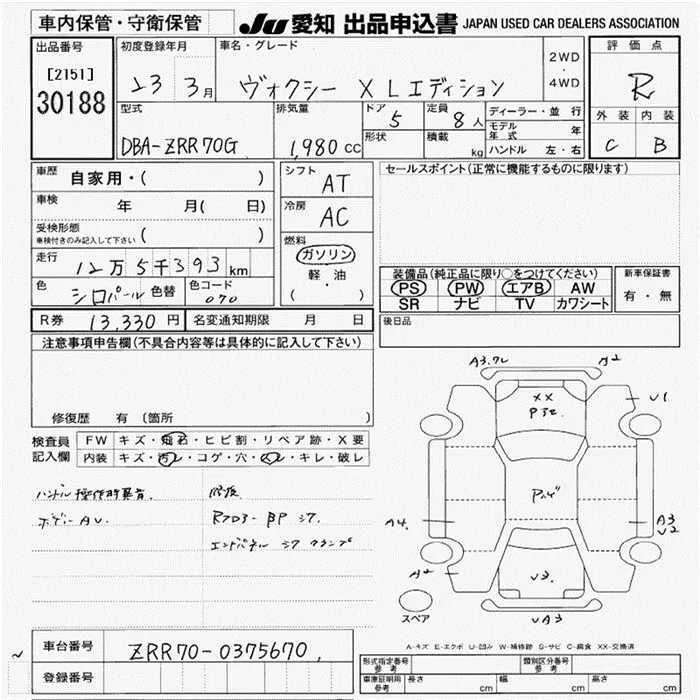 車内保管・守衛保管
JU 愛知 出品申込書 JAPAN USED CAR DEALERS ASSOCIATION
出品番号
[2151]
30188
初度登録年月
23 3月
車名・グレード
ヴォクシー X Lエディション
2WD
・
4WD
評価点
R
外装 内装
C B
型式
DBA-ZRR70G
排気量
1,980 cc
ドア 5
形状
定員 8人
積載 kg
ディーラー・並行
モデル年式 年
ハンドル 左・右
車歴 自家用・( )
車検 年 月( 日)
受検形態
車検付きのみ記入して下さい ( )
走行
12万5千393km
色 シロパール 色替
色コード 070
シフト AT
冷房 AC
燃料
ガソリン
軽・油
( )
セールスポイント(正常に機能するものに限ります)
装備品(純正品に限り○をつけてください)
PS PW エアB AW
SR ナビ TV カワシート
新車保証書
有・無
R券 13,330円 名変通知期限 月 日
後日品
注意事項申告欄(不具合内容等は具体的に記入して下さい)
修復歴 有 〔箇所 〕
検査員
記入欄
FW キズ・飛石・ヒビ割・リペア跡・X要
内装 キズ・汚レ・コゲ・穴・スレ・キレ・破レ
ハンドル操作時異音.
ボデーAU.
修復
RフロアーBP シワ.
エンドパネル シワ クランプ
A3.
A2
XX
P3
U1
P
A4.
A3
U2
A2
U3.
UA3
スペア
A-キズ E-エクボ U-凹み W-補修跡 S-サビ C-腐食 XX-交換済
車台番号 ZRR70-0375670
登録番号
型式指定番号
参考
類別区分番号
参考
車庫証明用
参考
長さ cm 幅 cm 高さ cm